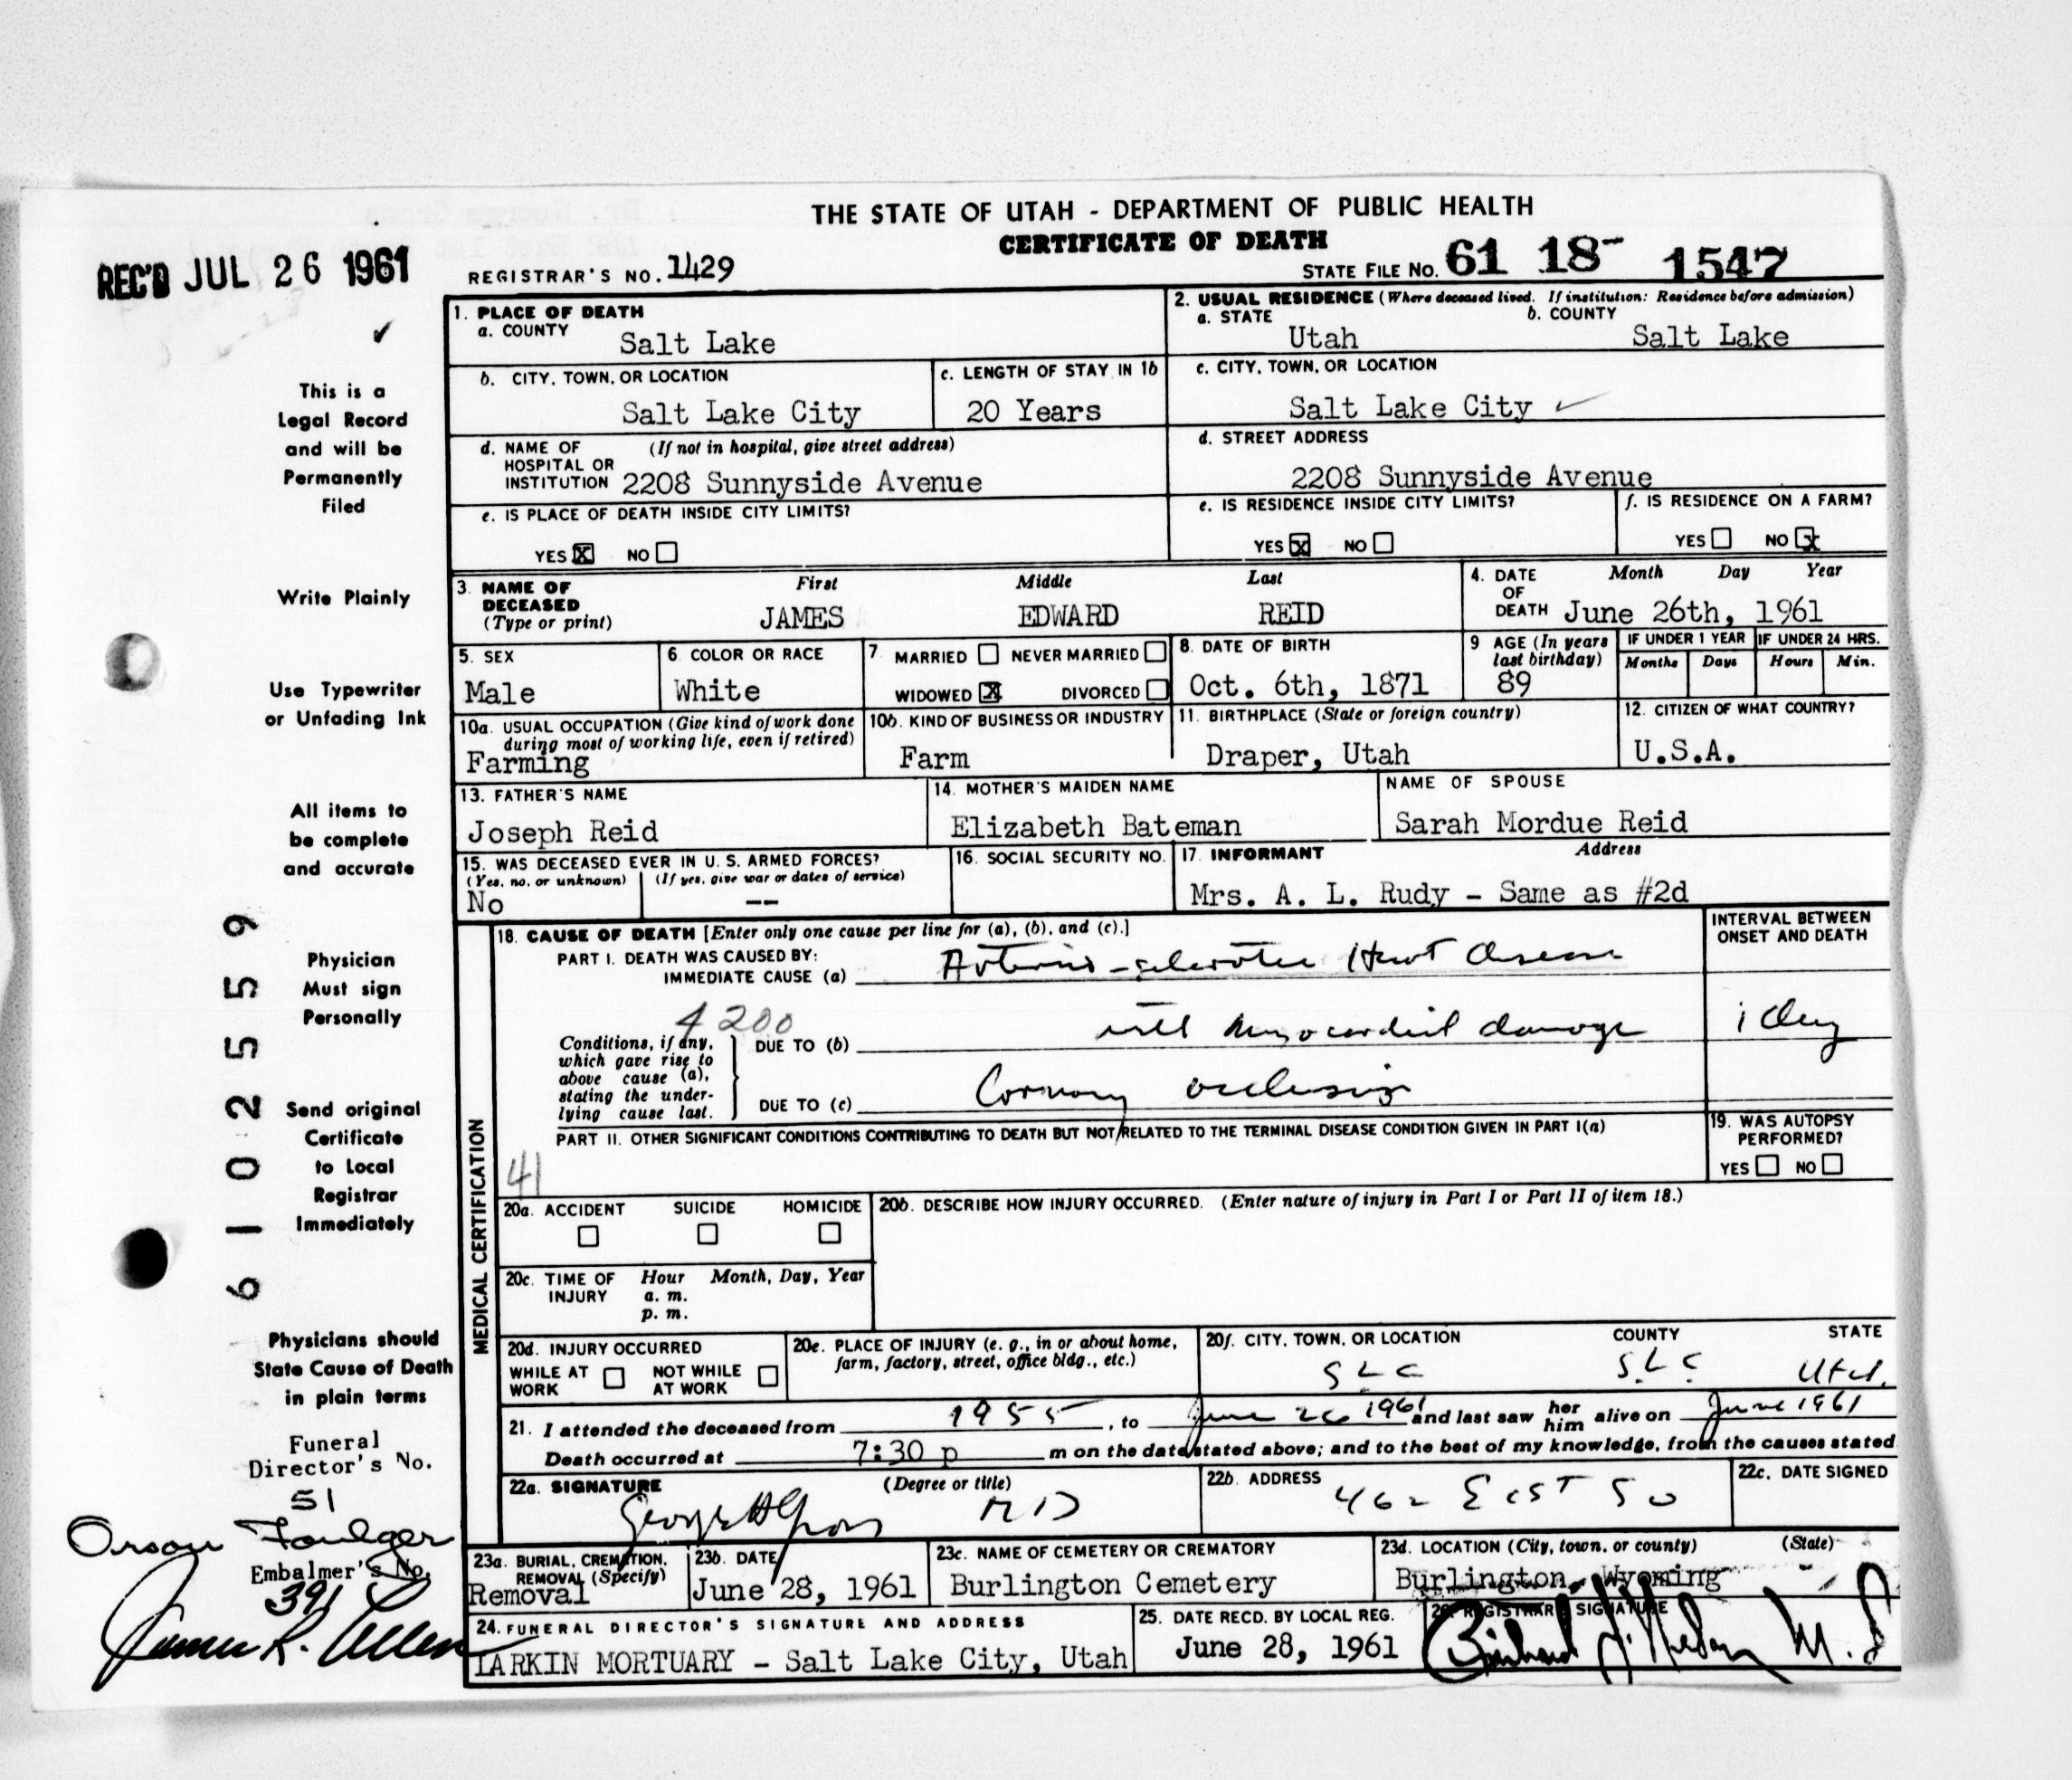 THE STATE OF UTAH - DEPARTMENT OF PUBLIC HEALTH
CERTIFICATE OF DEATH
REC'D JUL 26 1961
REGISTRAR'S NO. 1429
STATE FILE NO. 61 18- 1547
1. PLACE OF DEATH
a. COUNTY
Salt Lake
2. USUAL RESIDENCE (Where deceased lived. If institution: Residence before admission)
a. STATE b. COUNTY
Utah Salt Lake
b. CITY, TOWN, OR LOCATION
Salt Lake City
c. LENGTH OF STAY IN 1b
20 Years
c. CITY, TOWN, OR LOCATION
Salt Lake City
d. NAME OF HOSPITAL OR INSTITUTION (If not in hospital, give street address)
2208 Sunnyside Avenue
d. STREET ADDRESS
2208 Sunnyside Avenue
e. IS PLACE OF DEATH INSIDE CITY LIMITS?
YES X NO
e. IS RESIDENCE INSIDE CITY LIMITS?
YES X NO
f. IS RESIDENCE ON A FARM?
YES NO X
3. NAME OF DECEASED (Type or print)
First Middle Last
JAMES EDWARD REID
4. DATE OF DEATH Month Day Year
June 26th, 1961
5. SEX
Male
6. COLOR OR RACE
White
7. MARRIED NEVER MARRIED
WIDOWED X DIVORCED
8. DATE OF BIRTH
Oct. 6th, 1871
9 AGE (In years last birthday)
89
IF UNDER 1 YEAR IF UNDER 24 HRS.
Months Days Hours Min.
10a. USUAL OCCUPATION (Give kind of work done during most of working life, even if retired)
Farming
10b. KIND OF BUSINESS OR INDUSTRY
Farm
11. BIRTHPLACE (State or foreign country)
Draper, Utah
12. CITIZEN OF WHAT COUNTRY?
U.S.A.
13. FATHER'S NAME
Joseph Reid
14. MOTHER'S MAIDEN NAME
Elizabeth Bateman
NAME OF SPOUSE
Sarah Mordue Reid
15. WAS DECEASED EVER IN U. S. ARMED FORCES?
(Yes, no, or unknown) (If yes, give war or dates of service)
No --
16. SOCIAL SECURITY NO.
17. INFORMANT Address
Mrs. A. L. Rudy - Same as #2d
MEDICAL CERTIFICATION
18. CAUSE OF DEATH [Enter only one cause per line for (a), (b), and (c).]
INTERVAL BETWEEN ONSET AND DEATH
PART I. DEATH WAS CAUSED BY:
IMMEDIATE CAUSE (a) Arterio-sclerotic Heart Disease
4200
Conditions, if any, which gave rise to above cause (a), stating the underlying cause last.
DUE TO (b) with myocardial damage 1 day
DUE TO (c) Coronary occlusion
PART II. OTHER SIGNIFICANT CONDITIONS CONTRIBUTING TO DEATH BUT NOT RELATED TO THE TERMINAL DISEASE CONDITION GIVEN IN PART I(a)
41
19. WAS AUTOPSY PERFORMED?
YES NO
20a. ACCIDENT SUICIDE HOMICIDE
20b. DESCRIBE HOW INJURY OCCURRED. (Enter nature of injury in Part I or Part II of item 18.)
20c. TIME OF INJURY Hour Month, Day, Year
a. m.
p. m.
20d. INJURY OCCURRED
WHILE AT WORK NOT WHILE AT WORK
20e. PLACE OF INJURY (e. g., in or about home, farm, factory, street, office bldg., etc.)
20f. CITY, TOWN, OR LOCATION COUNTY STATE
SLC SLC Utah
21. I attended the deceased from 1955, to June 26 1961 and last saw her him alive on June 1961
Death occurred at 7:30 p m on the date stated above; and to the best of my knowledge, from the causes stated
22a. SIGNATURE (Degree or title)
George H Gross MD
22b. ADDRESS
462 East So
22c. DATE SIGNED
23a. BURIAL, CREMATION, REMOVAL (Specify)
Removal
23b. DATE
June 28, 1961
23c. NAME OF CEMETERY OR CREMATORY
Burlington Cemetery
23d. LOCATION (City, town, or county) (State)
Burlington, Wyoming
24. FUNERAL DIRECTOR'S SIGNATURE AND ADDRESS
LARKIN MORTUARY - Salt Lake City, Utah
25. DATE RECD. BY LOCAL REG.
June 28, 1961
26. REGISTRAR'S SIGNATURE
M. D
This is a
Legal Record
and will be
Permanently
Filed
Write Plainly
Use Typewriter
or Unfading Ink
All items to
be complete
and accurate
Physician
Must sign
Personally
Send original
Certificate
to Local
Registrar
Immediately
Physicians should
State Cause of Death
in plain terms
Funeral
Director's No.
51
Orson Foulger
Embalmer's No.
391
James R. Allen
6102559